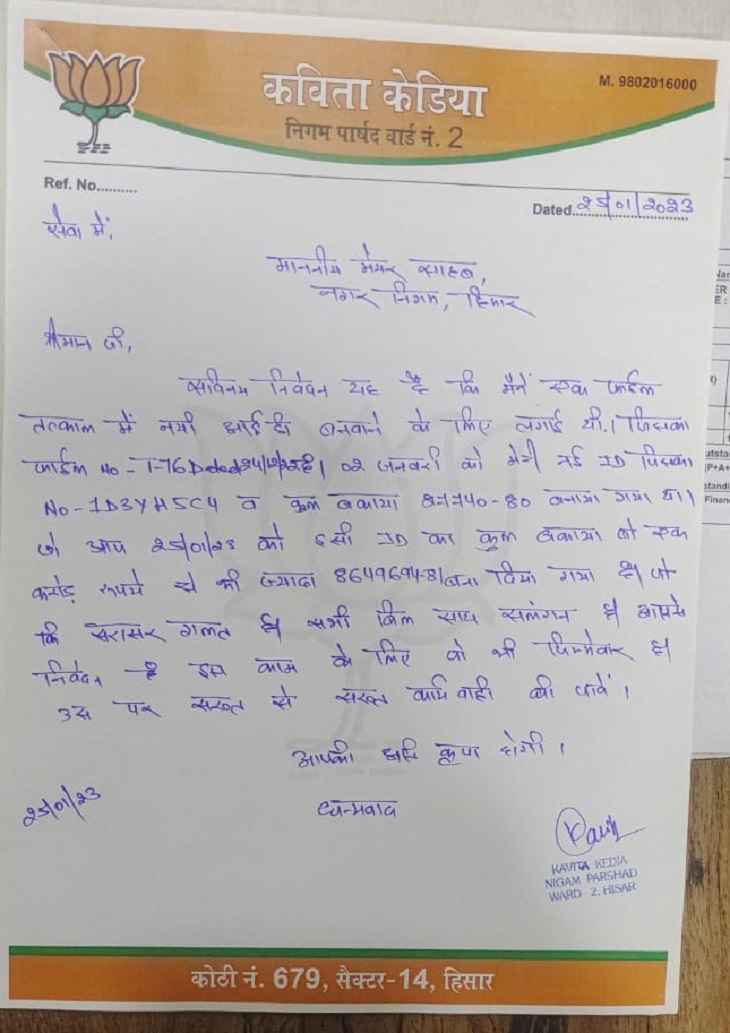 कविता केडिया
M. 9802016000
निगम पार्षद वार्ड नं. 2
Ref. No..........
Dated 25/01/2023
सेवा में,
माननीय मेयर साहब,
नगर निगम, हिसार
श्रीमान जी,
सविनय निवेदन यह है कि मैनें एक फाईल
तत्काल में नयी आई डी बनवाने के लिए लगाई थी। जिसका
फाईल No - T-76 है। 02 जनवरी को मेरी नई ID जिसका
No - 1D3YH5C4 व कुल बकाया बनाया गया था।
जो आप 25/01/23 को इसी ID का कुल बकाया जो एक
करोड़ रूपये से भी ज्यादा बना दिया गया है। जो
कि सरासर गलत है। सभी बिल साथ सलंगन है। आपसे
निवेदन है इस काम के लिए जो भी जिम्मेवार है।
उस पर सख्त से सख्त कार्यवाही की जावें।
आपकी अति कृपा होगी।
25/01/23
धन्यवाद
KAVITA KEDIA
NIGAM PARSHAD
WARD -2, HISAR
कोठी नं. 679, सैक्टर-14, हिसार